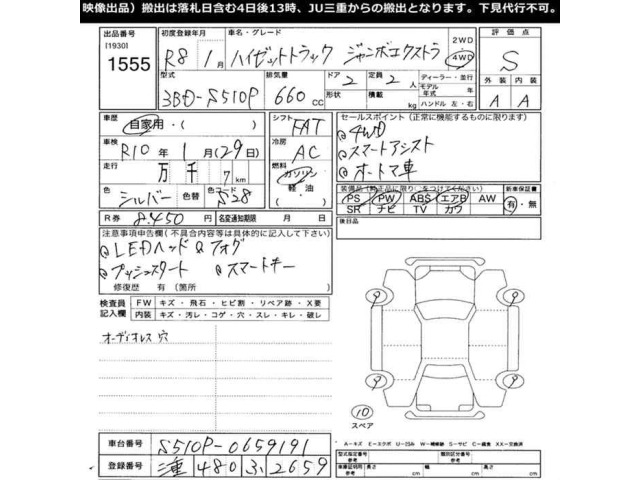 映像出品）搬出は落札日含む4日後13時、JU三重からの搬出となります。下見代行不可。
出品番号 初度登録年月 車名・グレード 2WD 評価点
[1930] 1555 R8年 1月 ハイゼットトラック ジャンボエクストラ 4WD S
型式 排気量 ドア 定員 ディーラー・並行 外装 内装
3BD-S510P 660cc 2 形状 2人 積載 kg モデル年式 年 ハンドル 左・右 A A
車歴 自家用・( ) シフト FAT セールスポイント（正常に機能するものに限ります）
車検 R10年 1月(29日) 冷房 AC 4WD
走行 万 千 7km 燃料 ガソリン 軽油 スマートアシスト
色 シルバー 色替 色コード S28 オートマ車
装備品（純正品に限り○をつけてください） 新車保証書
PS PW ABS エアB AW 有・無
SR ナビ TV カワ
R券 8,450円 名変通知期限 月 日 後日品
注意事項申告欄（不具合内容等は具体的に記入して下さい）
LEDヘッド&フォグ
プッシュスタート スマートキー
修復歴 有（箇所 ）
検査員記入欄 FW キズ・飛石・ヒビ割・リペア跡・X要
内装 キズ・汚レ・コゲ・穴・スレ・キレ・破レ
オーディオレス 穴
9 9
9 9
10
スペア
A－キズ E－エクボ U－凹み W－補修跡 S－サビ C－腐食 XX－交換済
車台番号 S510P-0659191
登録番号 三重 480 ふ 2659
型式指定番号 参考 類別区分番号 参考
車庫証明用 参考 長さ cm 幅 cm 高さ cm